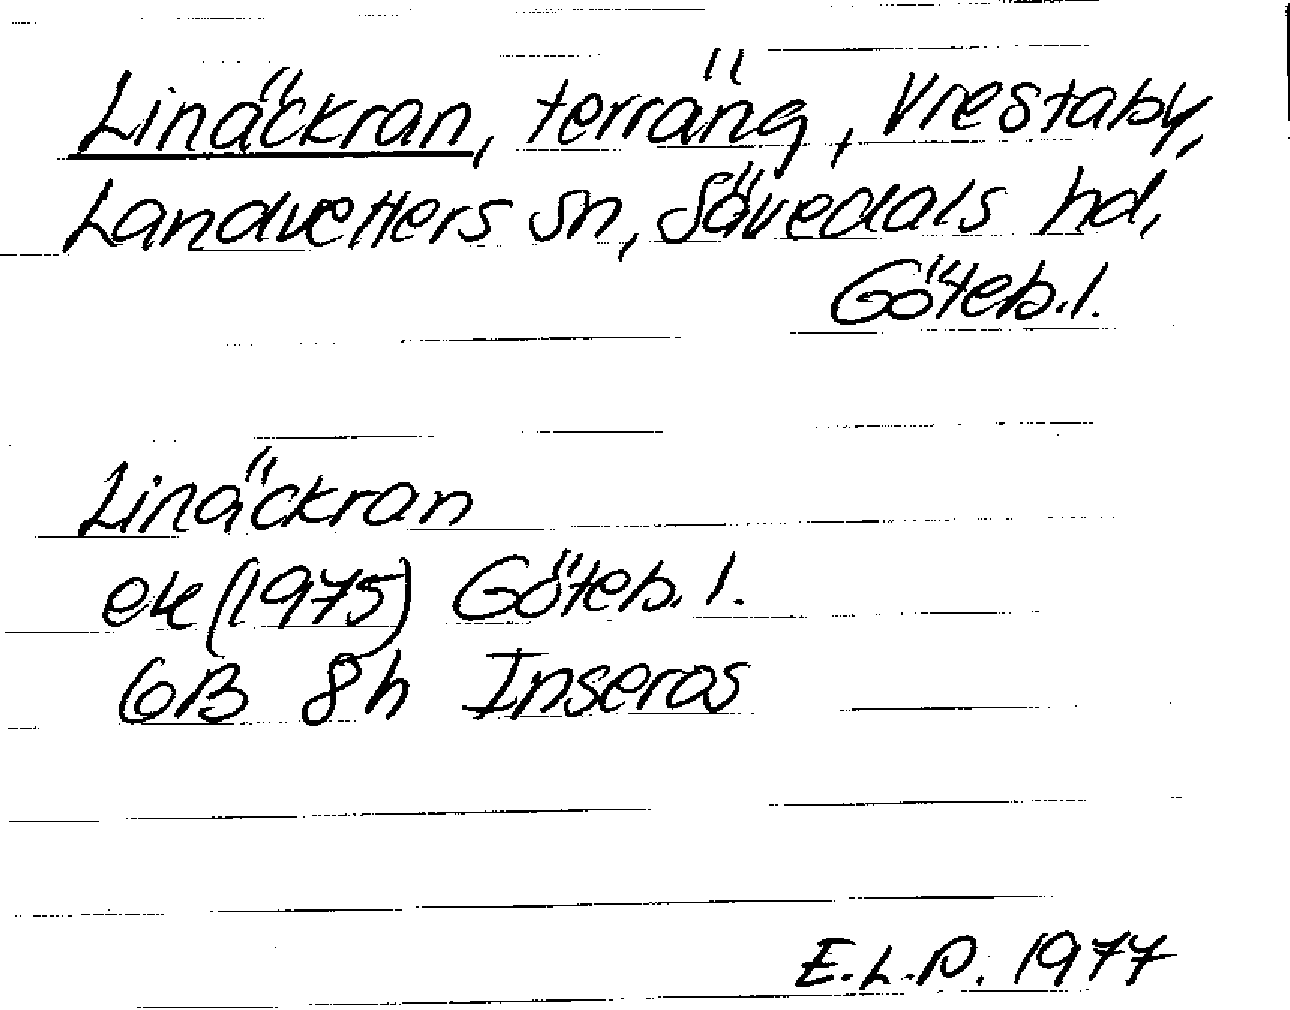 Linäckran, terräng, Vrestaby,
Landvetters sn, Sävedals hd,
Göteb. l.
Linäckran
ek (1975) Göteb. l.
6B 8h Inseros
E.L.P. 1977